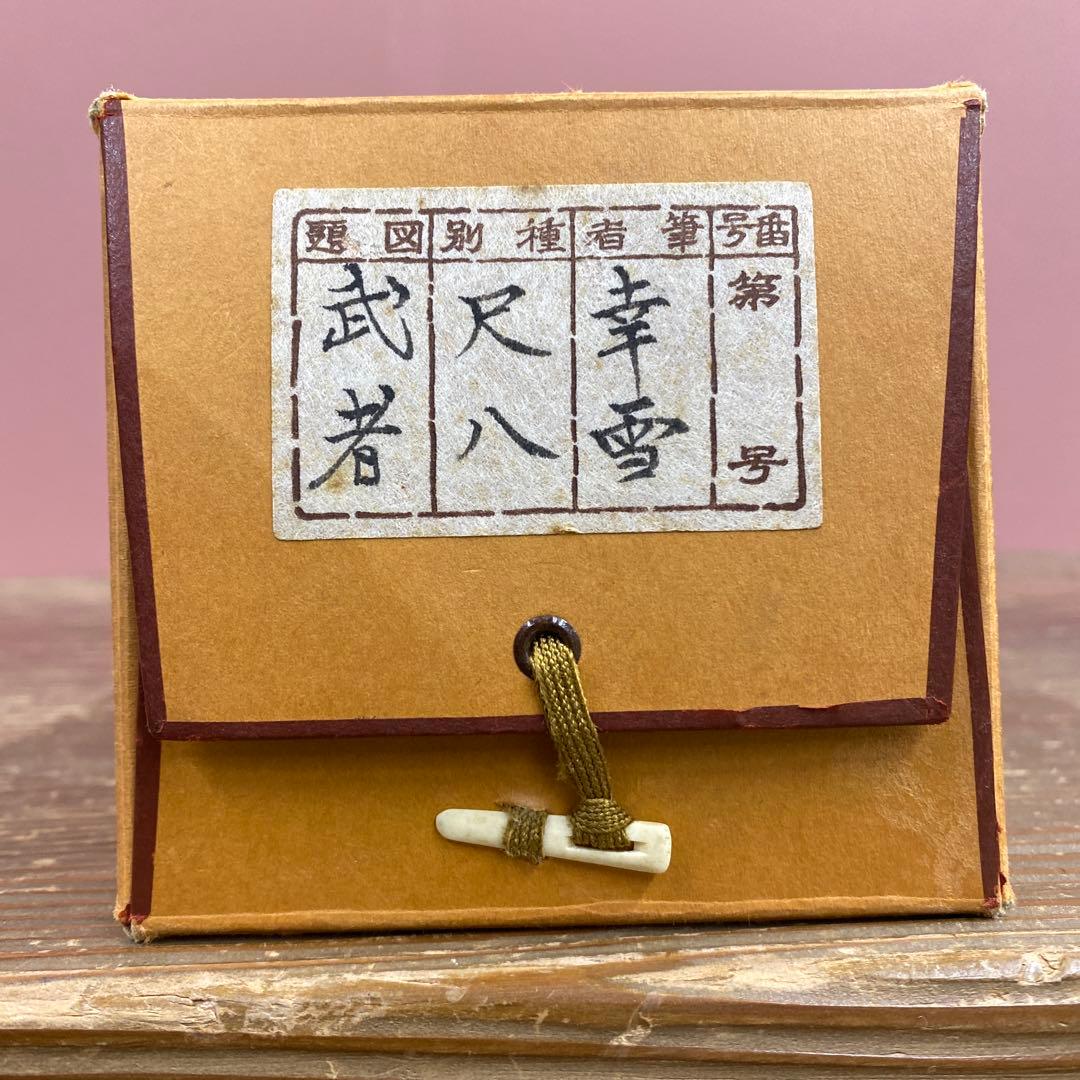 番号
第 号
筆者
幸雪
種別
尺八
図題
武者